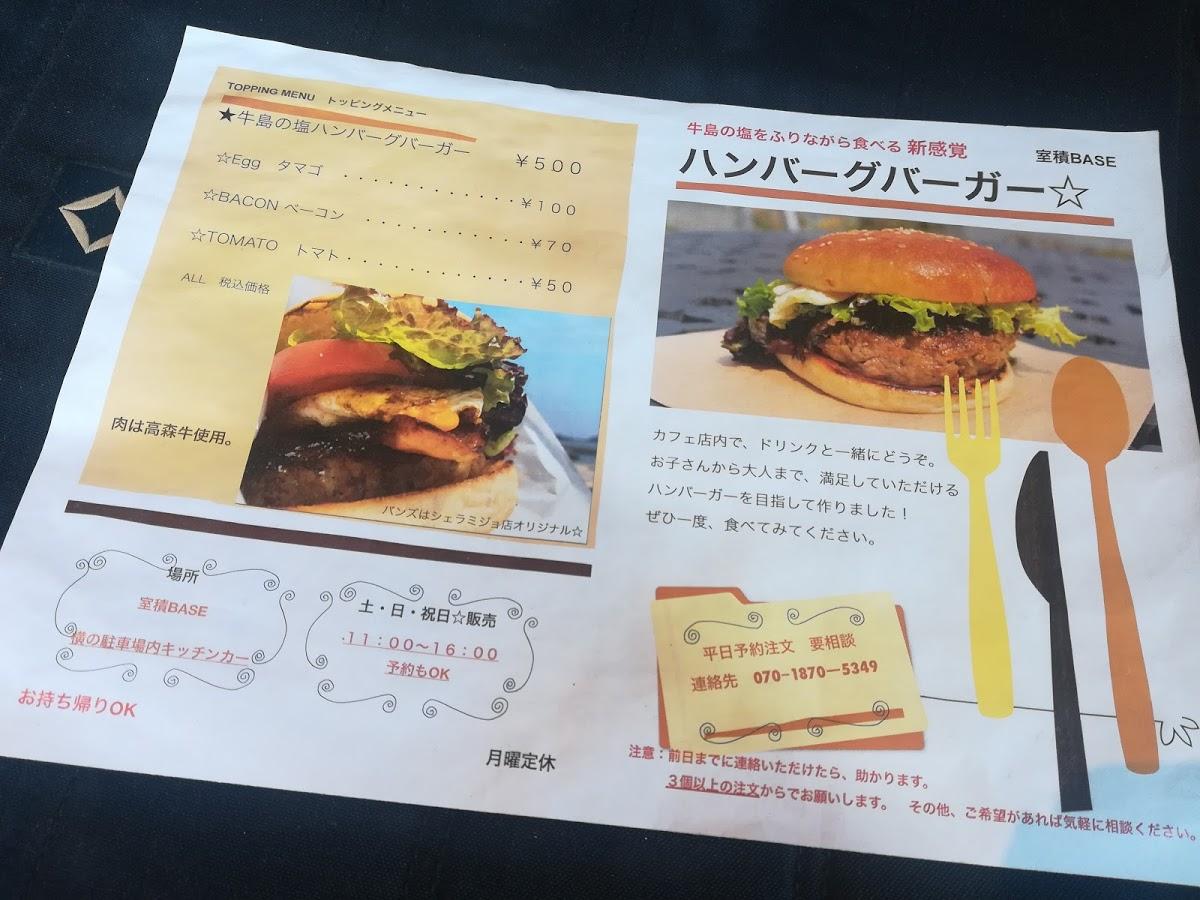 TOPPING MENU トッピングメニュー
★牛島の塩ハンバーグバーガー ￥５００
☆Egg タマゴ ・・・・・・・・・・・・・￥１００
☆BACON ベーコン ・・・・・・・・・・・￥７０
☆TOMATO トマト・・・・・・・・・・・・￥５０
ALL 税込価格
肉は高森牛使用。
バンズはシェラミジョ店オリジナル☆
場所
室積BASE
横の駐車場内キッチンカー
お持ち帰りOK
土・日・祝日☆販売
１１：００～１６：００
予約もOK
月曜定休
牛島の塩をふりながら食べる 新感覚
室積BASE
ハンバーグバーガー☆
カフェ店内で、ドリンクと一緒にどうぞ。
お子さんから大人まで、満足していただける
ハンバーガーを目指して作りました！
ぜひ一度、食べてみてください。
平日予約注文 要相談
連絡先 070-1870—5349
注意：前日までに連絡いただけたら、助かります。
３個以上の注文からでお願いします。 その他、ご希望があれば気軽に相談ください。